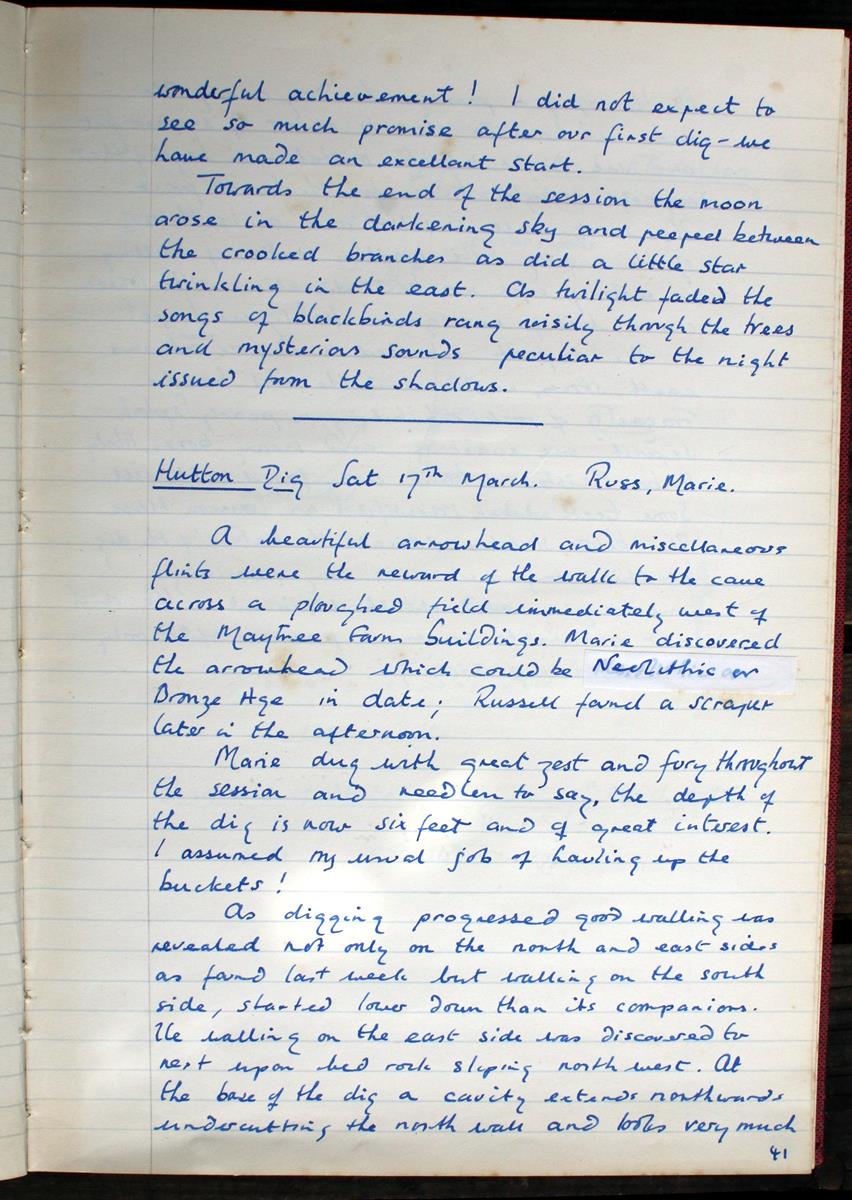 wonderful achievement! I did not expect to
see so much promise after our first dig - we
have made an excellant start.
Towards the end of the session the moon
arose in the darkening sky and peeped between
the crooked branches as did a little star
twinkling in the east. As twilight faded the
songs of blackbirds rang noisily through the trees
and mysterious sounds peculiar to the night
issued from the shadows.
Hutton Dig Sat 17th March. Russ, Marie.
A beautiful arrowhead and miscellaneous
flints were the reward of the walk to the cave
across a ploughed field immediately west of
the Maytree Farm buildings. Marie discovered
the arrowhead which could be Neolithic or
Bronze Age in date; Russell found a scraper
later in the afternoon.
Marie dug with great zest and fury throughout
the session and needless to say, the depth of
the dig is now six feet and of great interest.
I assumed my usual job of hauling up the
buckets!
As digging progressed good walling was
revealed not only on the north and east sides
as found last week but walling on the south
side, started lower down than its companions.
The walling on the east side was discovered to
rest upon bed rock sloping north west. At
the base of the dig a cavity extends northwards
undercutting the north wall and looks very much
41